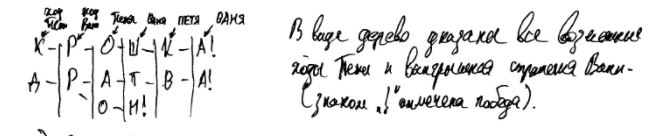 ход ход Петя Ваня ПЕТЯ ВАНЯ
Пети Вани
К - Р - О - Ш - К - А!
Д - Р - А - Т - В - А!
О - Н!
В виде дерево указаны все возможные
ходы Пети и выигрышная стратегия Вани -
(знаком „!" отмечена победа).